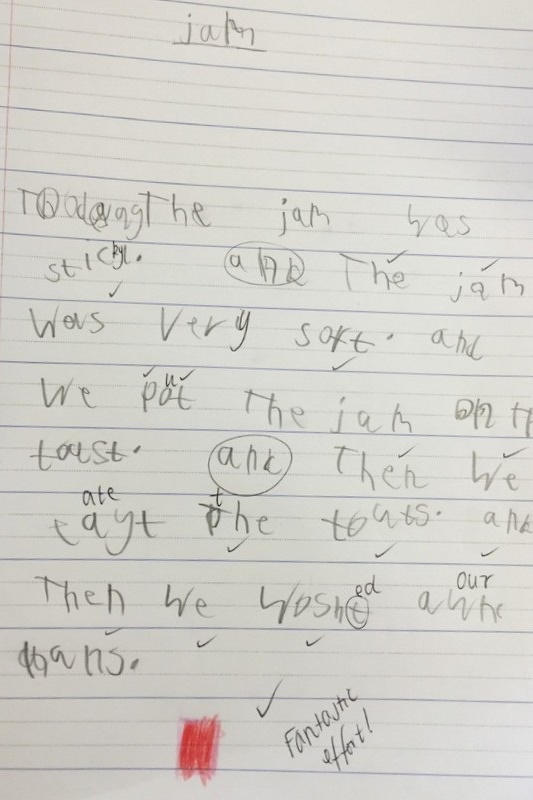 jam
Today The jam was
sticky. and The jam
was very soft. and
we put The jam on
toast. and Then we
ate
eayt the touts. and
ed our
Then we wosht awne
hans.
Fantastic
effort!